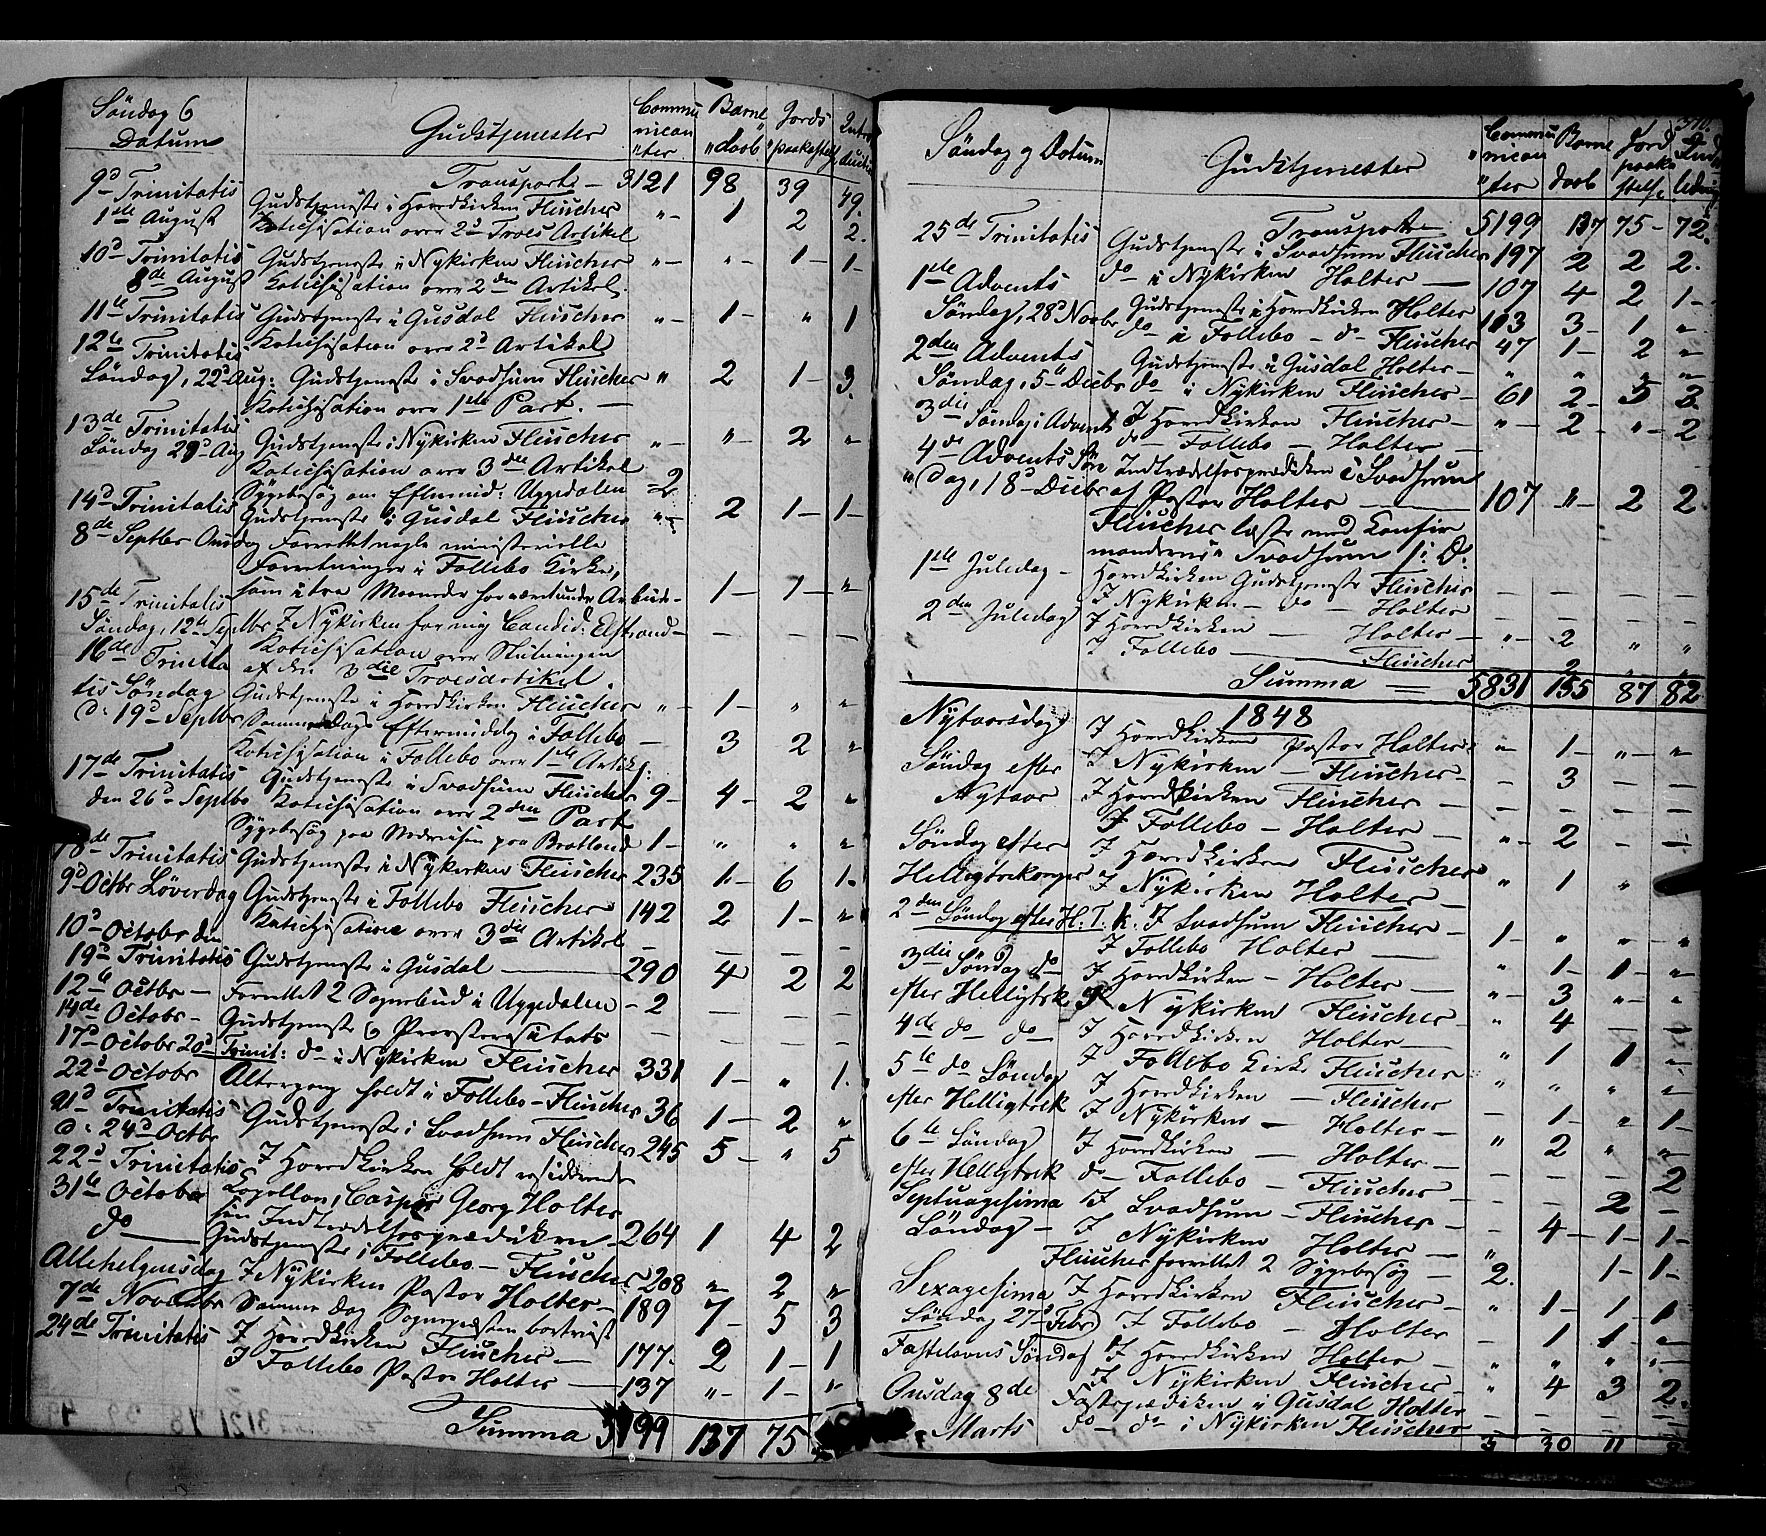 Søndag 6 Datum Gudstjenester Communicanter Barnedaab Jordspaakastelse Introduction
9d Trinitatis Transport - 3121 98 39 49.
1ste August Gudstjeneste i Hovedkirken Fleischer "- 1 2 2.
Katechisation over 2d Troes Artikel
10d Trinitatis Gudstjeneste i Nykirken Fleischer "- "- 1- 1-
8de August Katechisation over 2den Artikel.
11te Trinitatis Gudstjeneste i Gusdal Fleischer "- 1- " 1
12te Trinitatis Katechisation over 2d Artikel
Søndag, 22d Aug: Gudstjeneste i Svadsum Fleischer " 2 1- 3.
Katechisation over 1ste Part. -
13de Trinitatis
Søndag 29d Aug Gudstjeneste i Nykirken Fleischer "- "- 2 "
Katechisation over 3die Artikel
Sygebesøg om Eftermid: Uggedalen -2
14d Trinitatis Gudstjeneste i Gusdal Fleischer "- 2 1- 1-
8de Septbr Onsdag Forrettet nogle ministerielle
Forretninger i Follebo Kirke,
som i tre Maaneder har været under Arbeide- 1- 1- "
15de Trinitatis
Søndag, 12te Septbr I Nykirken for mig Candid: Elstrand - - - -
16de Trinita Katechisation over Slutningen
af den 3die Troesartikel.
tis Søndag Gudstjeneste i Hovedkirken Fleischer "- 1- " "
d: 19d Septbr Samme Dags Eftermiddag i Follebo - 3 2 "
Katechisation i Follebo over 1ste Artikel:
17de Trinitatis Gudstjeneste i Svadsum Fleischer 9- 4- 2 "
den 26d Septbr Katechisation over 2den Part
Sygebesøg paa Brotlund 1- " " "
18de Trinitatis Gudstjeneste i Nykirken Fleischer 235 1- 6 1-
9d Octbr Løverdag Gudstjeneste i Follebo Fleischer 142 2 1- "
10d Octobr den Katechisation over 3die Artikel - - -
19d Trinitatis Gudstjeneste i Gusdal - 290 4 2 2
12te Octbr - Forrettet 2 Sognebud i Uggedalen - 2 - - -
14de Octobr - Gudstjeneste - - - -
17d Octobr 20d Trinit: do i Nykirken Fleischer 331 1- " 1-
22d Octobr Altergang holdt i Follebo - Fleischer 36 1- 2 "
21d Trinitatis
d: 24d Octbr Gudstjeneste i Svadsum Fleischer 245 5- " 5
22d Trinitatis I Hovedkirken holdt residerende
31te Octobr Capellan, Caspar Georg Holter
sin Indtrædelsesprædiken - 264 1 4 2
do Gudstjeneste i Follebo - Fleischer 208 " 2 "
Allehelgensdag I Nykirken Pastor Holter - 189 7- 5 3
7de Novembr Samme Dag Sognepræsten bortreist
24de Trinitatis I Hovedkirken Fleischer - 177- 2 1- 1
I Follebo Pastor Holter - 137 "- 1- "
Summa 5199 137 75
370.
Søndag og Datum Gudstjenester Communicanter Barnedaab Jordpaakastelse
25de Trinitatis Transport 5199 137 75- 72.
Gudstjeneste i Svadsum Fleischer 197 2 2 2.
1ste Advents do i Nykirken Holter - 107 4 2 1-
Søndag, 28d Novbr Gudstjeneste i Hovedkirken Holter 103 3- 1 "
do i Follebo - do - Fleischer 47 1- 2 "
2den Advents Gudstjeneste i Gusdal Holter - " " " "
Søndag, 5te Decbr do i Nykirken Fleischer - 61 2- 5 3.
3die Søndag i Advent I Hovedkirken Fleischer - "- 2- "- 2
4de Advents Søn do - Follebo - Holter -
"dag, 18d Decbr Indtrædelsesprædiken i Svadsum
af Pastor Holter - 107 "- 2 2
Fleischer læste med Confir
manderne i Svadsum
1ste Juledag - Hovedkirken Gudstjeneste Fleischer
I Nykirken - do - Holter - - - -
2den Juledag I Hovedkirken - Holter - "- 2 " "
I Follebo - Fleischer 2 " "
Summa = 5831 155 87 82
1848
Nytaarsdag I Hovedkirken Pastor Holter "- 1- "- "
Søndag efter I Nykirken - Fleischer - - 3 - -
Nytaar I Hovedkirken Fleischer - - - - -
I Follebo - Holter - "- 2 - -
Søndag efter I Hovedkirken Fleischer
Helligtrekonger I Nykirken Holter - " 1 "
2den Søndag efter H. T. k. I Svadsum Fleischer - 1- " "- "
I Follebo Holter -
3die Søndag do I Hovedkirken - Holter - " 1- 1- "
efter Helligtrek I Nykirken Fleischer - "- 3 "- "
4de do - do - I Hovedkirken Holter - " 4 - -
5te do Søndag I Follebo Kirke Fleischer " 1 1 "
efter Helligtrek I Hovedkirken - Fleischer " " " "
I Nykirken - Holter - - 1- " 1-
6te Søndag I Hovedkirken - Holter - " 2 " "
efter Helligtrek do - Follebo - Fleischer - 2
Septuagesima I Svadsum - Fleischer - - - 2 -
Søndag - I Nykirken Holter - " 4- 1- 1-
Fleischer forrettet 2 Sygebesøg - 2. 1- 1-
Sexagesima I Hovedkirken Fleischer - " 1- 1 1
Søndag 27d Febr I Follebo - Holter 1 1 "
Fastelavns Søndag I Hovedkirken Holter - " " " "
I Nykirken Fleischer - " 4 3 2.
Onsdag 8de Fasteprædiken i Gusdal Holter - - - -
Marts do - do i Nykirken Fleischer - - - -
3 30 11